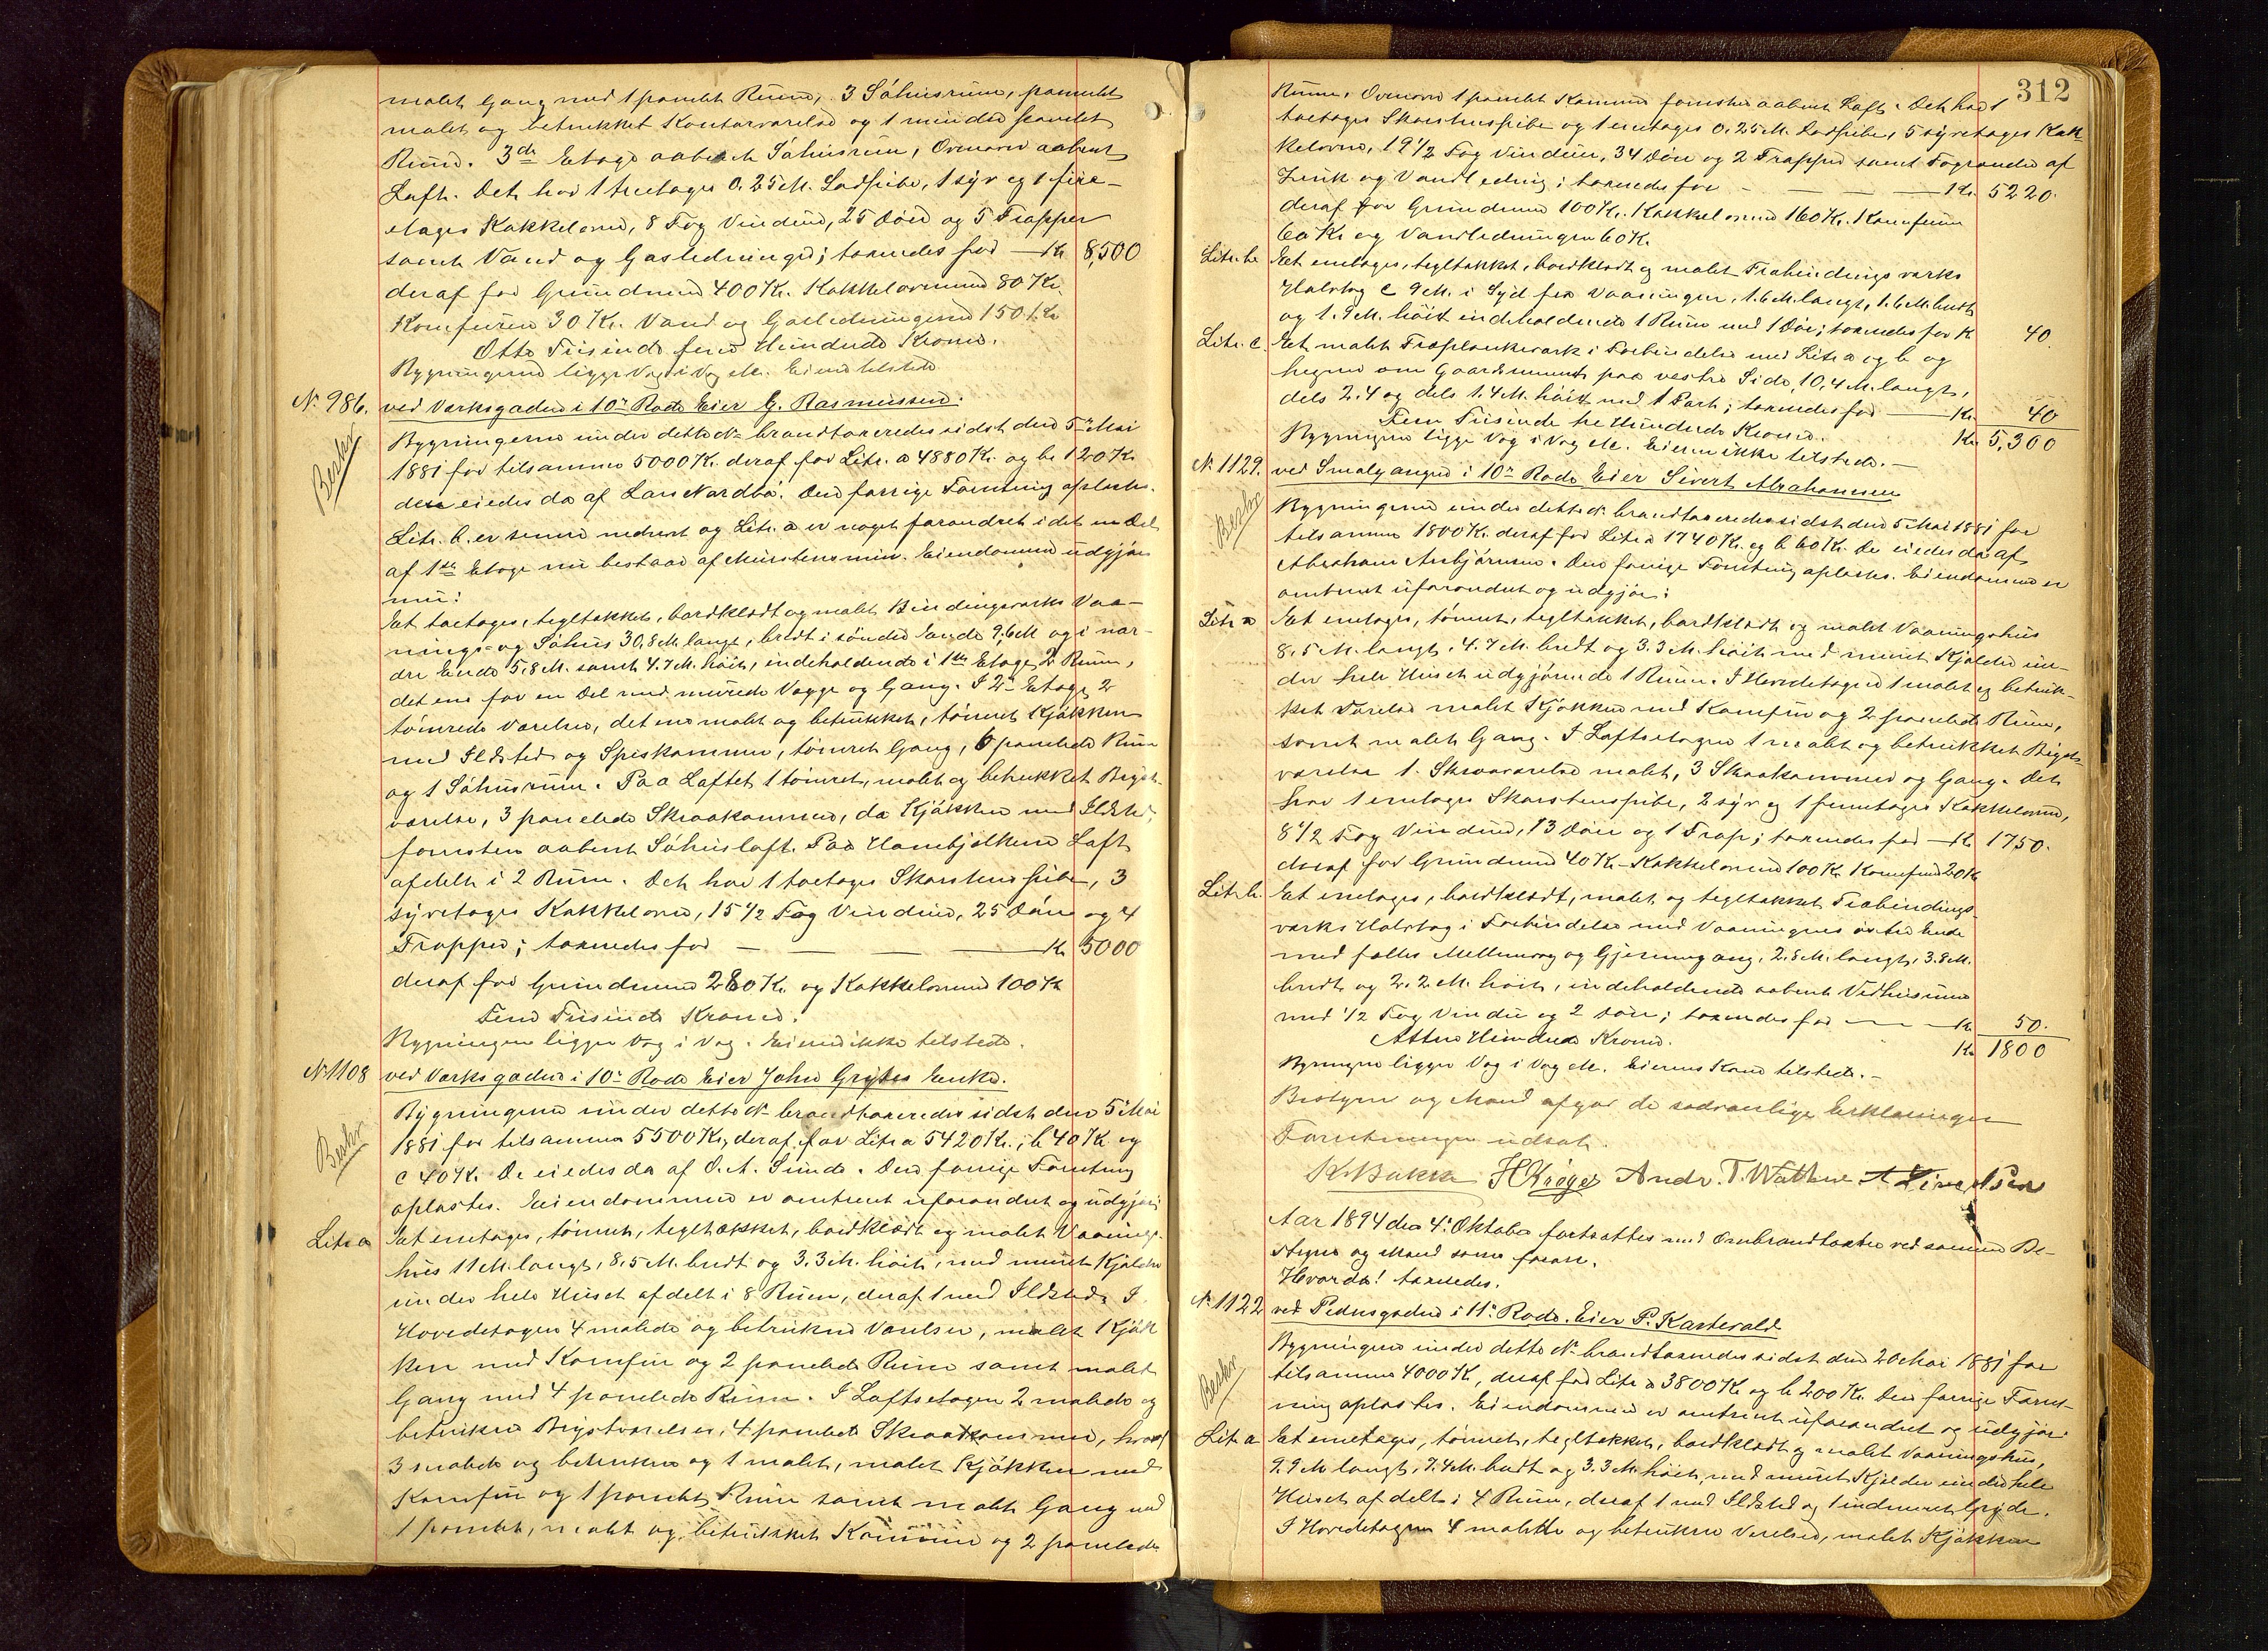 malet Gang med 1 panelet Rum, 3 Søhusrum, panelet
malet og betrukket Kontorværelse og 1 mindre panelet
Rum. 3de Etage aabent Søhusrum, Ovenover aabent
Loft. Det har 1 treetages 0.25 M. Ladpibe, 1 syv og 1 fire-
etages Kakkelovne, 8 Fag Vinduer, 25 Døre og 5 Trapper
samt Vand og Gasledninger; taxeredes for — Kr 8,500
deraf for Grundmure 400 Kr. Kakkelovnene 80 Kr.
Komfuren 30 Kr. Vand og Gasledningerne 150 Kr
Otte Tusinde fem Hundrede Kroner.
Bygningerne ligge Væg i Væg etc. Eieren tilstede
No. 986. ved Værksgaden i 10de Rode Eier G. Rasmussen.
Beskr
Bygningerne under dette No brandtaxeredes sidst den 5te Mai
1881 for tilsammen 5000 Kr. deraf for Litr. a 4880 Kr. og b 120 Kr.
den eiedes da af Lars Nordbø. Den forrige Forretning oplæstes.
Litr. b. er senere nedrevet og Litr. a er noget forandret idet en Del
af 1ste Etage nu bestaar af Murstensmur. Eiendommen udgjør
nu:
Et toetages, tegltækket, bordklædt og malet Bindingsværks Vaa-
nings- og Søhus 30,8 M. langt, bredt i søndre Ende 9,6 M og i nor-
dre Ende 5,8 M. samt 4.7 M. høit, indeholdende i 1ste Etage 2 Rum,
det ene for en Del med murede Vægge og Gang. I 2de Etage 2
tømrede Værelser, det ene malet og betrukket, tømret Kjøkken
med Ildsted og Spiskammer, tømret Gang, 6 panelede Rum
og 1 Søhusrum. Paa Loftet 1 tømret, malet og betrukket Bryst-
værelse, 3 panelede Skraakammere, do Kjøkken med Ildsted,
forresten aabent Søhusloft. Paa Hanebjelkerne Loft
afdelt i 2 Rum. Det har 1 toetages Skorstenspibe, 3
syvetages Kakkelovne, 15 1/2 Fag Vinduer, 25 Døre og 4
Trapper; taxeredes for — — — Kr 5000
deraf for Grundmure 280 Kr. og Kakkelovnene 100 Kr
Fem Tusinde Kroner.
Bygningen ligger Væg i Væg. Eieren ikke tilstede.
No 1108 ved Værksgaden i 10de Rode Eier John Grytes Enke.
Beskr
Bygningerne under dette No brandtaxeredes sidst den 5te Mai
1881 for tilsammen 5500 Kr, deraf for Litr a 5420 Kr., b 40 Kr og
c 40 Kr. De eiedes da af O. A. Sunde. Den forrige Forretning
oplæstes. Eiendommen er omtrent uforandret og udgjør:
Litr a Et enetages, tømret, tegltækket, bordklædt og malet Vaanings-
hus 11 M. langt, 8,5 M. bredt og 3.3 M. høit, med muret Kjælder
under hele Huset afdelt i 8 Rum, deraf 1 med Ildsted. I
Hovedetagen 4 malede og betrukne Værelser, malet Kjøk-
ken med Komfur og 2 panelede Rum samt malet
Gang med 4 panelede Rum. I Loftsetagen 2 malede og
betrukne Brystværelser, 4 panelede Skraakammere, hvoraf
3 malede og betrukne og 1 malet, malet Kjøkken med
Komfur og 1 panelet Rum samt malet Gang med
1 panelet, malet og betrukket Kammer og 2 panelede
312
Rum. Ovenover 1 panelet Kammer forresten aabent Loft. Det har 1
toetages Skorstenspibe og 1 enetages 0.25 M. Ladpibe, 5 syvetages Kak-
kelovne, 19 1/2 Fag Vinduer, 34 Døre og 2 Trapper samt Tagrender af
Zink og Vandledning; taxeredes for — — — Kr. 5220.
deraf for Grundmure 100 Kr. Kakkelovnene 160 Kr. Komfurene
60 Kr og Vandledningen 60 Kr.
Litr. b. Et enetages, tegltækket, bordklædt og malet Træbindingsværks
Halvtag c 9 M. i Syd fra Vaaningen, 1.6 M. langt, 1.6 M. bredt
og 1.9 M. høit indeholdende 1 Rum med 1 Dør; taxeredes for Kr 40.
Litr. c. Et malet Træplankeværk i Forbindelse med Litr a og b og
hegner om Gaardsrummet paa vestre Side, 10,4 M. langt,
dels 2.4 og dels 1.4 M. høit med 1 Port; taxeredes for — Kr. 40
Fem Tusinde tre Hundrede Kroner. Kr 5,300
Bygningerne ligge Væg i Væg etc. Eieren ikke tilstede. —
No. 1129. ved Smalgangen i 10de Rode Eier Sivert Abrahamsen
Beskr
Bygningerne under dette No. brandtaxeredes sidst den 5 Mai 1881 for
tilsammen 1800 Kr. deraf for Litr a 1740 Kr. og b 60 Kr. De eiedes da af
Abraham Asbjørnsen. Den forrige Forretning oplæstes. Eiendommen er
omtrent uforandret og udgjør:
Litr a Et enetages, tømret, tegltækket, bordklædt og malet Vaaningshus
8,5 M. langt, 4.7 M. bredt og 3.3 M. høit med muret Kjælder un-
der hele Huset udgjørende 1 Rum. I Hovedetagen 1 malet og betruk-
ket Værelse malet Kjøkken med Komfur og 2 panelede Rum,
samt malet Gang. I Loftsetagen 1 malet og betrukket Bryst-
værelse 1. Skraaværelse malet, 3 Skraakammere og Gang. Det
har 1 enetages Skorstenspibe, 2 syv og 1 femetages Kakkelovne,
8 1/2 Fag Vinduer, 13 Døre og 1 Trap; taxeredes for — Kr 1750.
deraf for Grundmure 40 Kr. Kakkelovnene 100 Kr. Komfuren 20 Kr
Litr b. Et enetages, bordklædt, malet og tegltækket Træbindings-
værks Halvtag i Forbindelse med Vaaningens østre Ende
med fælles Mellemvæg og Gjennemgang, 2.8 M. langt, 3.8 M.
bredt og 2.2 M. høit, indeholdende aabent Vedhusrum
med 1/2 Fag Vindu og 2 Døre; taxeredes for — — Kr. 50.
Atten Hundrede Kroner. Kr 1800
Bygningerne ligger Væg i Væg etc. Eierens Kone tilstede. —
Bestyrer og Mænd afgav de sædvanlige Erklæringer
Forretningen udsat.
K. Bakke H Krøger Andr. T. Wathne
Aar 1894 den 4de Oktober fortsattes med Ombrandtaxten ved samme Be-
styrer og Mænd som foran.
Hvorda! taxeredes.
No. 1122 ved Pedersgaden i 11te Rode. Eier P. Kartevold
Beskr
Bygningerne under dette No. brandtaxeredes sidst den 20 Mai 1881 for
tilsammen 4000 Kr, deraf for Litr a 3800 Kr og b 200 Kr. Den forrige Forret-
ning oplæstes. Eiendommen er omtrent uforandret og udgjør:
Litr a Et enetages, tømret, tegltækket, bordklædt og malet Vaaningshus,
9.9 M langt, 7.4 M. bredt og 3.3 M. høit, med muret Kjelder under hele
Huset afdelt i 4 Rum, deraf 1 med Ildsted og 1 indmuret Gryde.
I Hovedetagen 4 malede og betrukne Værelser, malet Kjøkken